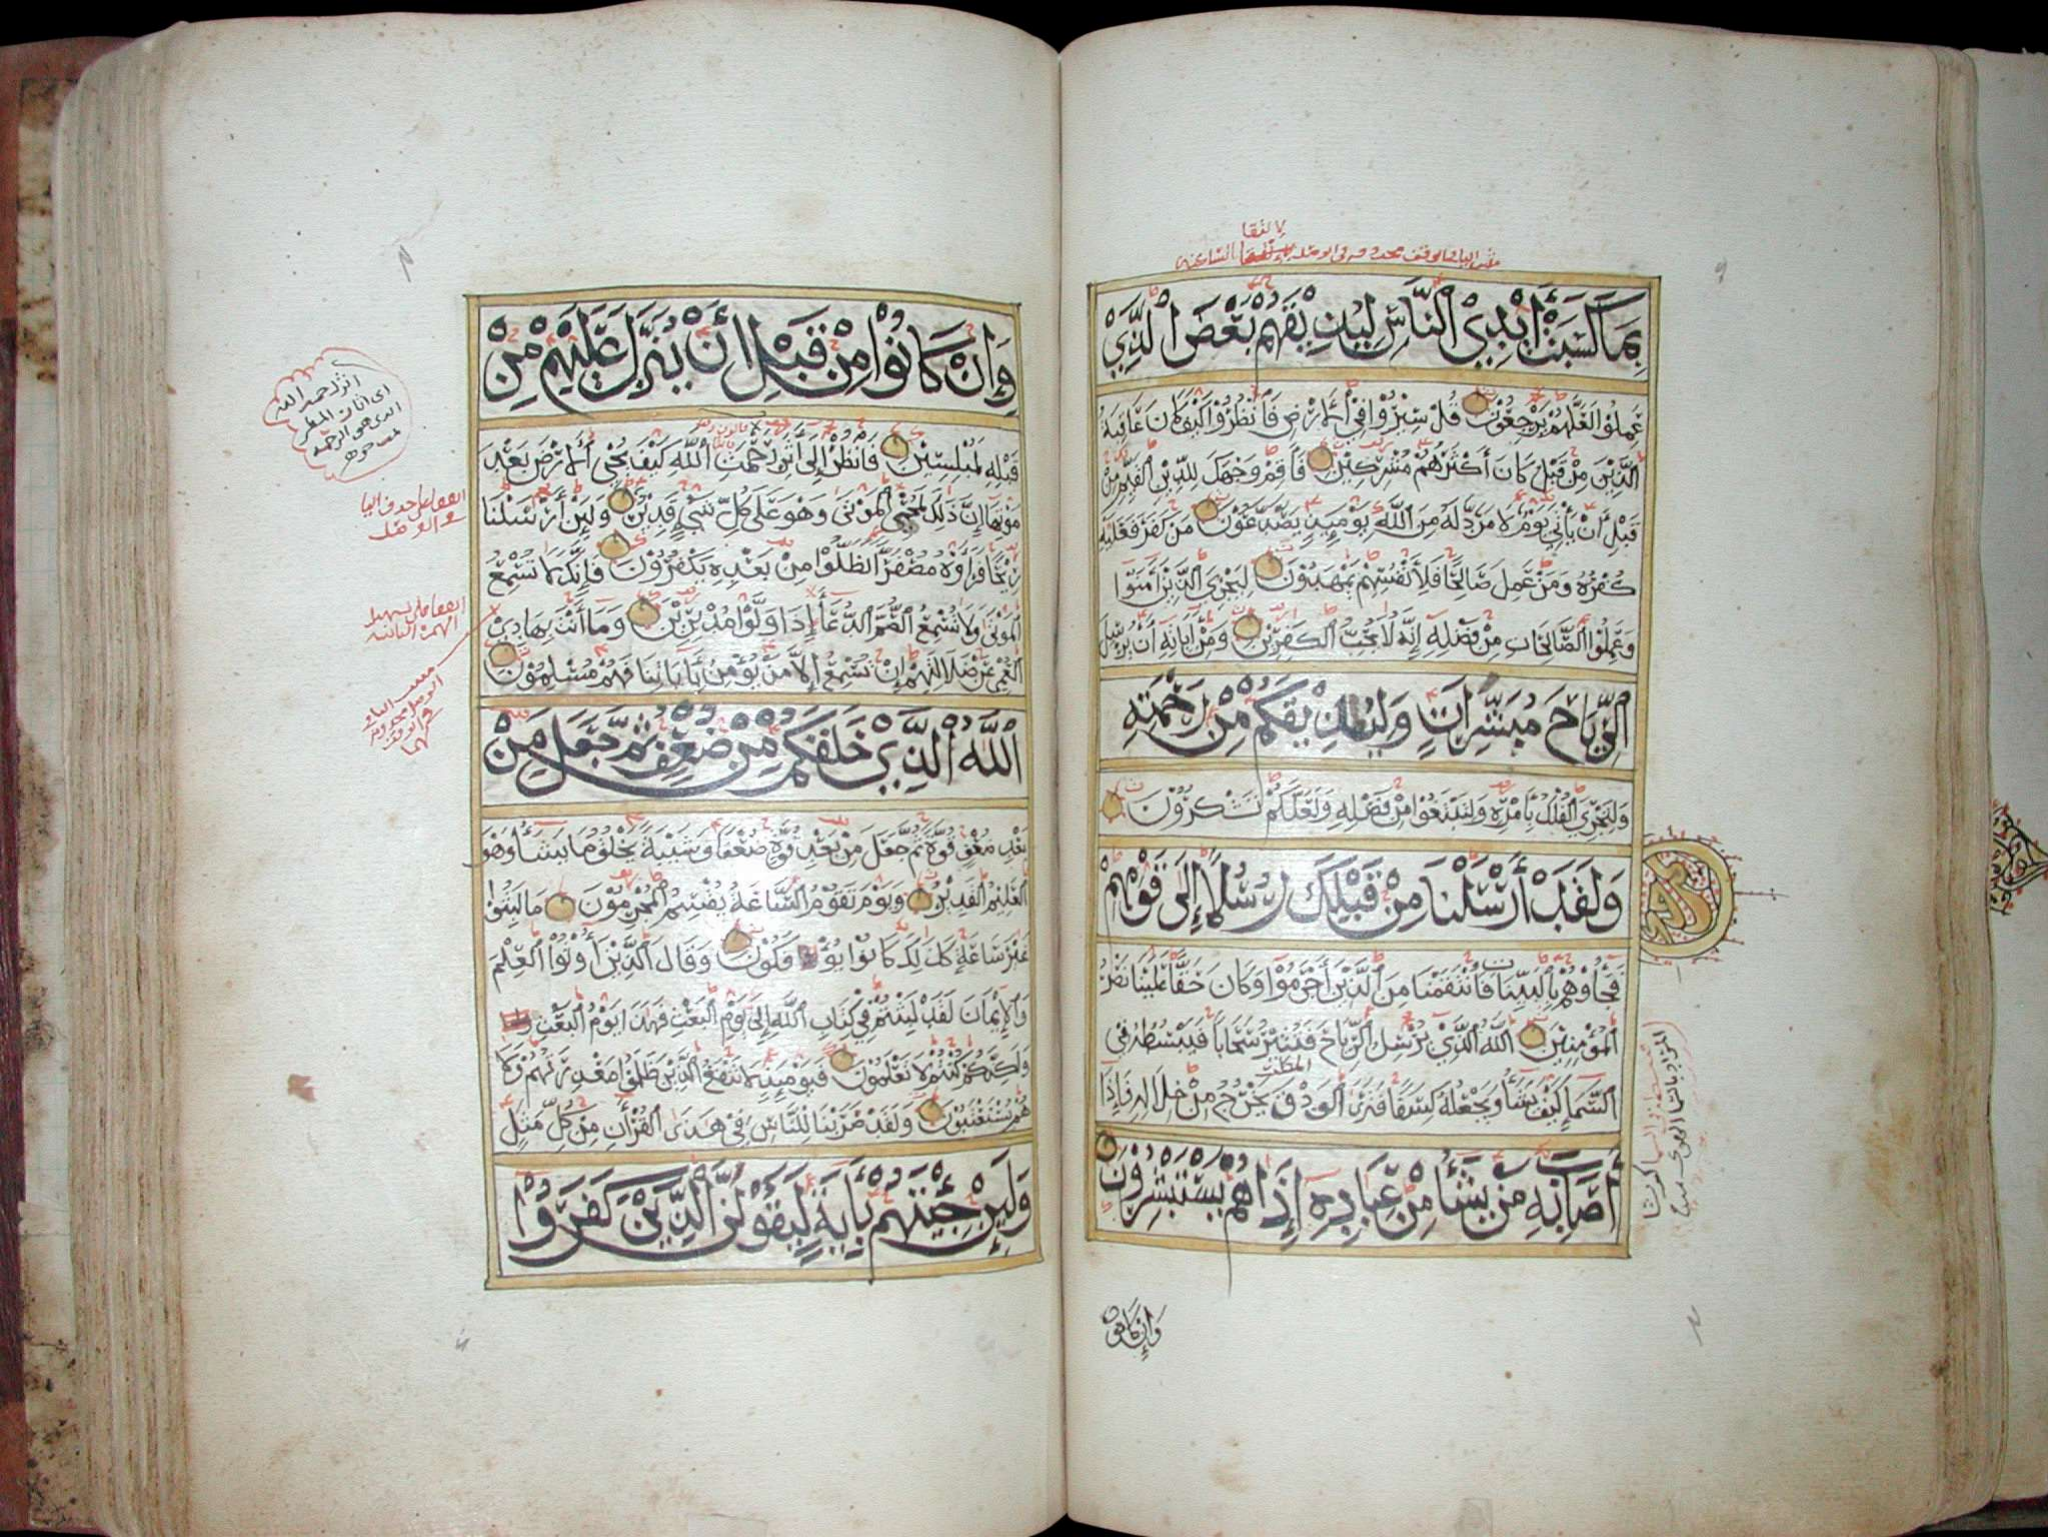 بِمَا كَسَبَتْ أَيْدِي النَّاسِ لِيُذِيْقَهُمْ بَعْضَ الَّذِيْ
عَمِلُوْا لَعَلَّهُمْ يَرْجِعُوْنَ قُلْ سِيْرُوْا فِيْ الْأَرْضِ فَانْظُرُوْا كَيْفَ كَانَ عَاقِبَةُ
الَّذِيْنَ مِنْ قَبْلُ كَانَ أَكْثَرُهُمْ مُشْرِكِيْنَ فَأَقِمْ وَجْهَكَ لِلدِّيْنِ الْقَيِّمِ مِنْ
قَبْلِ أَنْ يَأْتِيَ يَوْمٌ لَا مَرَدَّ لَهُ مِنَ اللَّهِ يَوْمَئِذٍ يَصَّدَّعُوْنَ مَنْ كَفَرَ فَعَلَيْهِ
كُفْرُهُ وَمَنْ عَمِلَ صَالِحًا فَلِأَنْفُسِهِمْ يَمْهَدُوْنَ لِيَجْزِيَ الَّذِيْنَ آمَنُوْا
وَعَمِلُوْا الصَّالِحَاتِ مِنْ فَضْلِهِ إِنَّهُ لَا يُحِبُّ الْكَافِرِيْنَ وَمِنْ آيَاتِهِ أَنْ يُرْسِلَ
الرِّيَاحَ مُبَشِّرَاتٍ وَلِيُذِيْقَكُمْ مِنْ رَحْمَتِهِ
وَلِتَجْرِيَ الْفُلْكُ بِأَمْرِهِ وَلِتَبْتَغُوْا مِنْ فَضْلِهِ وَلَعَلَّكُمْ تَشْكُرُوْنَ
وَلَقَدْ أَرْسَلْنَا مِنْ قَبْلِكَ رُسُلًا إِلَى قَوْمِهِمْ
فَجَاؤُوْهُمْ بِالْبَيِّنَاتِ فَانْتَقَمْنَا مِنَ الَّذِيْنَ أَجْرَمُوْا وَكَانَ حَقًّا عَلَيْنَا نَصْرُ
الْمُؤْمِنِيْنَ اللَّهُ الَّذِيْ يُرْسِلُ الرِّيَاحَ فَتُثِيْرُ سَحَابًا فَيَبْسُطُهُ فِي
المطر
السَّمَاءِ كَيْفَ يَشَاءُ وَيَجْعَلُهُ كِسَفًا فَتَرَى الْوَدْقَ يَخْرُجُ مِنْ خِلَالِهِ فَإِذَا
أَصَابَ بِهِ مَنْ يَشَاءُ مِنْ عِبَادِهِ إِذَا هُمْ يَسْتَبْشِرُوْنَ
وَإِنْ كَانُوْا
وَإِنْ كَانُوْا مِنْ قَبْلِ أَنْ يُنَزَّلَ عَلَيْهِمْ مِنْ
قَبْلِهِ لَمُبْلِسِيْنَ فَانْظُرْ إِلَى أَثَرِ رَحْمَتِ اللَّهِ كَيْفَ يُحْيِي الْأَرْضَ بَعْدَ
مَوْتِهَا إِنَّ ذَلِكَ لَمُحْيِي الْمَوْتَى وَهُوَ عَلَى كُلِّ شَيْءٍ قَدِيْرٌ وَلَئِنْ أَرْسَلْنَا
رِيْحًا فَرَأَوْهُ مُصْفَرًّا لَظَلُّوْا مِنْ بَعْدِهِ يَكْفُرُوْنَ فَإِنَّكَ لَا تُسْمِعُ
الْمَوْتَى وَلَا تُسْمِعُ الصُّمَّ الدُّعَاءَ إِذَا وَلَّوْا مُدْبِرِيْنَ وَمَا أَنْتَ بِهَادِ
الْعُمْيِ عَنْ ضَلَالَتِهِمْ إِنْ تُسْمِعُ إِلَّا مَنْ يُؤْمِنُ بِآيَاتِنَا فَهُمْ مُسْلِمُوْنَ
اللَّهُ الَّذِيْ خَلَقَكُمْ مِنْ ضُعْفٍ ثُمَّ جَعَلَ مِنْ
بَعْدِ ضُعْفٍ قُوَّةً ثُمَّ جَعَلَ مِنْ بَعْدِ قُوَّةٍ ضُعْفًا وَشَيْبَةً يَخْلُقُ مَا يَشَاءُ وَهُوَ
الْعَلِيْمُ الْقَدِيْرُ وَيَوْمَ تَقُوْمُ السَّاعَةُ يُقْسِمُ الْمُجْرِمُوْنَ مَا لَبِثُوْا
غَيْرَ سَاعَةٍ كَذَلِكَ كَانُوْا يُؤْفَكُوْنَ وَقَالَ الَّذِيْنَ أُوْتُوْا الْعِلْمَ
وَالْإِيْمَانَ لَقَدْ لَبِثْتُمْ فِيْ كِتَابِ اللَّهِ إِلَى يَوْمِ الْبَعْثِ فَهَذَا يَوْمُ الْبَعْثِ
وَلَكِنَّكُمْ كُنْتُمْ لَا تَعْلَمُوْنَ فَيَوْمَئِذٍ لَا تَنْفَعُ الَّذِيْنَ ظَلَمُوْا مَعْذِرَتُهُمْ وَلَا
هُمْ يُسْتَعْتَبُوْنَ وَلَقَدْ ضَرَبْنَا لِلنَّاسِ فِيْ هَذَا الْقُرْآنِ مِنْ كُلِّ مَثَلٍ
وَلَئِنْ جِئْتَهُمْ بِآيَةٍ لَيَقُوْلَنَّ الَّذِيْنَ كَفَرُوْا
اثر رحمة الله
اي اثار المطر
الذي هو الرحمة